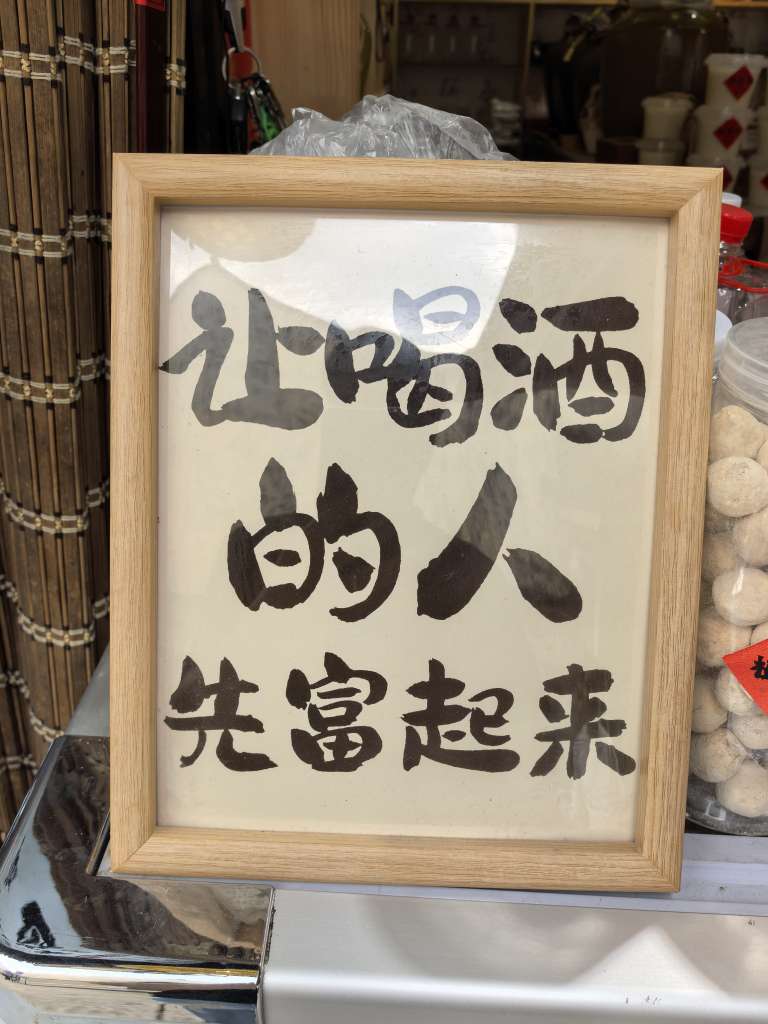 让喝酒
的人
先富起来